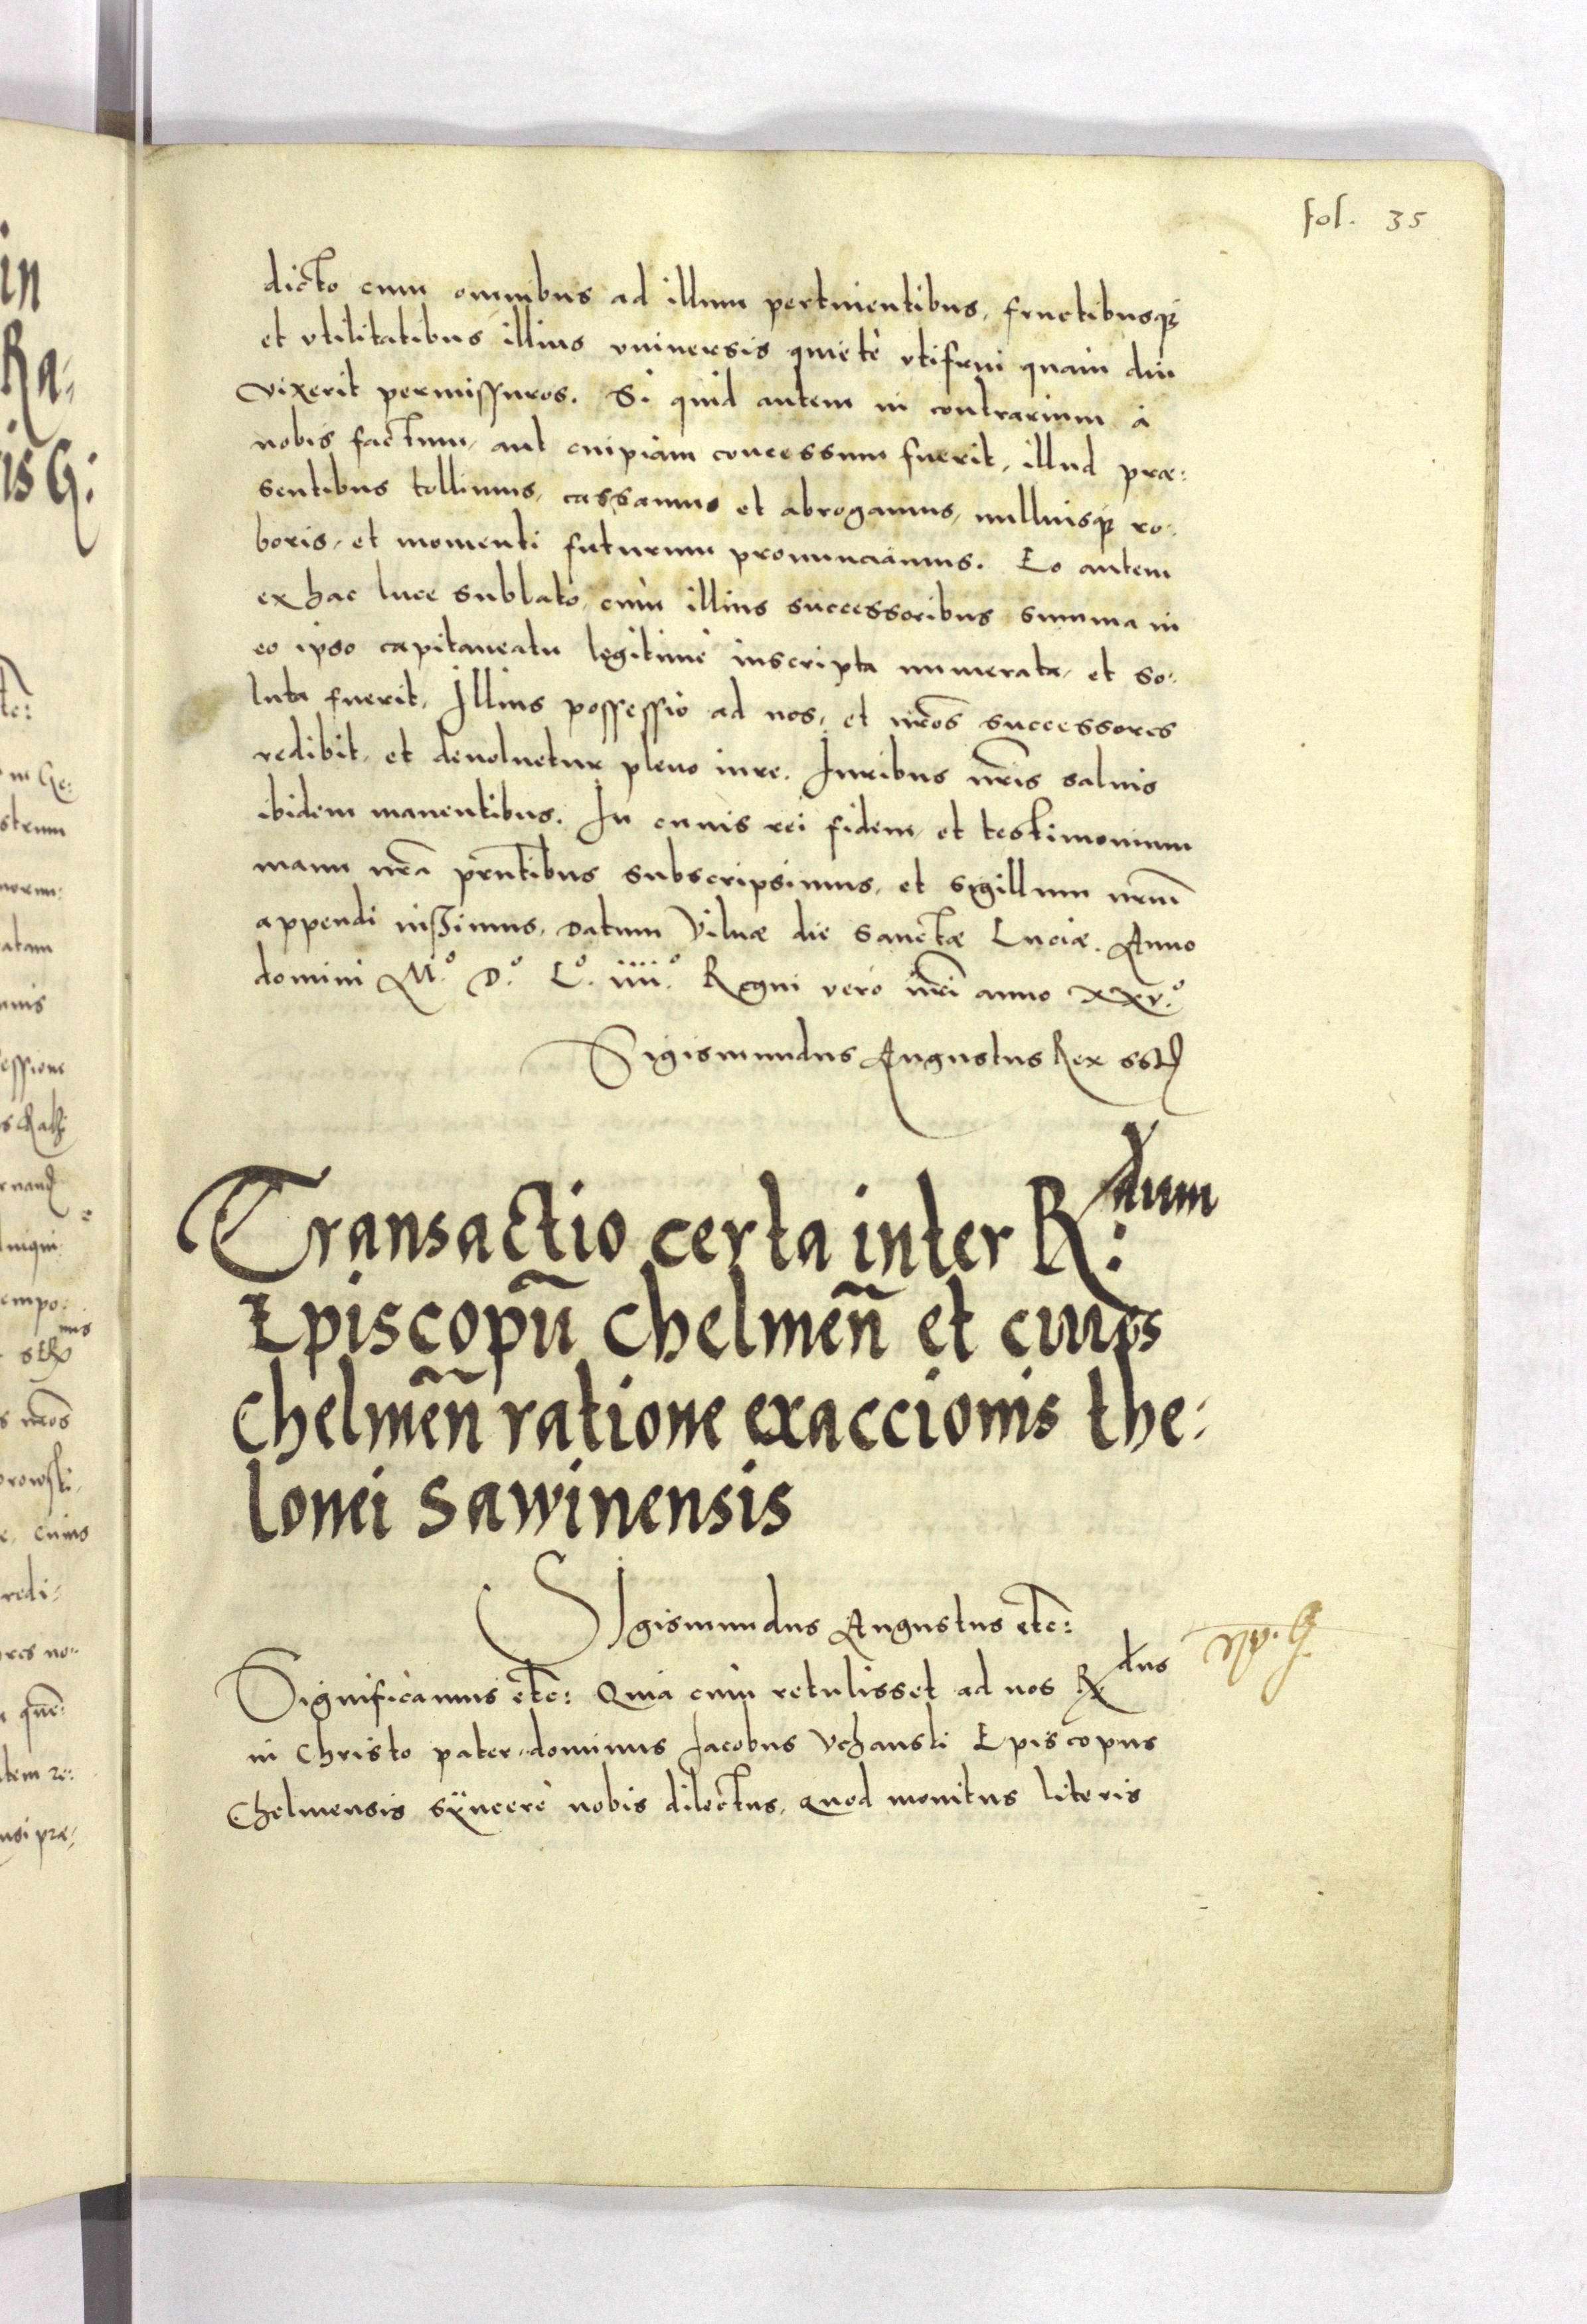 fol. 35
dicto cum omnibus ad illum pertinentibus, fructibusq;
et vtilitatibus illius vniuersis quiete vtifrui quam diu
vixerit permissuros. Si quid autem in contrarium à
nobis factum, aut cuipiam concessum fuerit, illud præ:
sentibus tollimus, cassamus et abrogamus, nulliusq; ro:
boris, et momenti futurum pronunciamus. Eo autem
ex hac luce sublato, cum illius successoribus summa in
eo ipso capitaneatu legitime inscripta numerata, et so:
luta fuerit, Illius possessio ad nos, et nr̃os successores
redibit, et deuoluetur pleno iure. Iuribus nr̃is saluis
ibidem manentibus. In cuius rei fidem, et testimonium
manu nr̃a pñtibus subscripsimus, et sigillum nr̃um
appendi iussimus, Datum Vilnæ die Sanctæ Luciæ. Anno
domini M.º D.º L.º iiii.º Regni vero nr̃i anno xxv.º
Sigismundus Augustus Rex sst
Transactio certa inter R:dum
Episcopũ Chelmeñ et ciues
Chelmeñ ratione exaccionis the:
lonei Sawinensis
SIgismundus Augustus etc:
Significamus etc: Quia cum retulisset ad nos Rdus
in Christo pater, dominus Iacobus Vchanski Episcopus
Chelmensis sÿncere nobis dilectus, quod monitus literis
in
Ra:
is G: